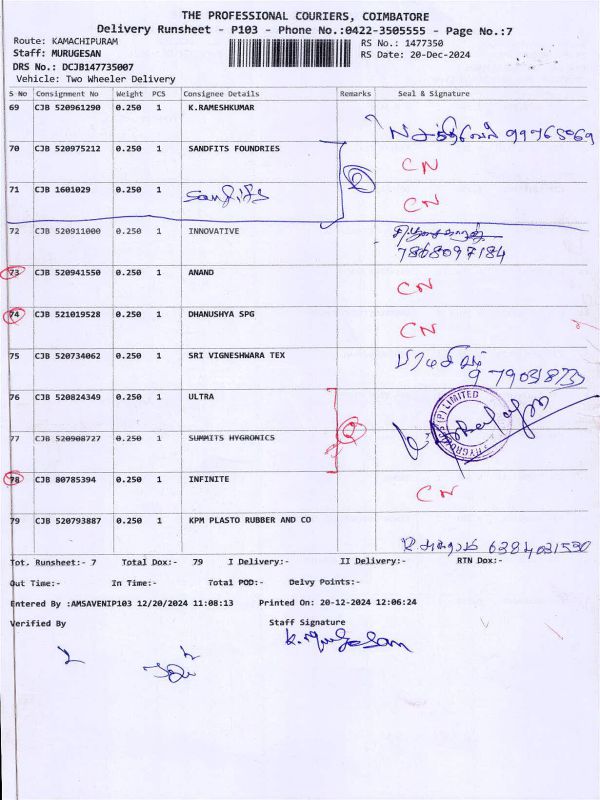 THE PROFESSIONAL COURIERS, COIMBATORE
Delivery Runsheet - P103 - Phone No.:0422-3505555 - Page No.:7
Route: KAMACHIPURAM RS No.: 1477350
Staff: MURUGESAN RS Date: 20-Dec-2024
DRS No.: DCJB147735007
Vehicle: Two Wheeler Delivery
S No Consignment No Weight PCS Consignee Details Remarks Seal & Signature
69 CJB 520961290 0.250 1 K.RAMESHKUMAR
70 CJB 520975212 0.250 1 SANDFITS FOUNDRIES CN
71 CJB 1601029 0.250 1 Sanfits CN
72 CJB 520911000 0.250 1 INNOVATIVE
7868097184
73 CJB 520941550 0.250 1 ANAND CN
74 CJB 521019528 0.250 1 DHANUSHYA SPG CN
75 CJB 520734062 0.250 1 SRI VIGNESHWARA TEX
76 CJB 520824349 0.250 1 ULTRA
(P) LIMITED
77 CJB 520908727 0.250 1 SUMMITS HYGRONICS
78 CJB 80785394 0.250 1 INFINITE CN
79 CJB 520793887 0.250 1 KPM PLASTO RUBBER AND CO
6384031530
Tot. Runsheet:- 7 Total Dox:- 79 I Delivery:- II Delivery:- RTN Dox:-
Out Time:- In Time:- Total POD:- Delvy Points:-
Entered By :AMSAVENIP103 12/20/2024 11:08:13 Printed On: 20-12-2024 12:06:24
Verified By Staff Signature